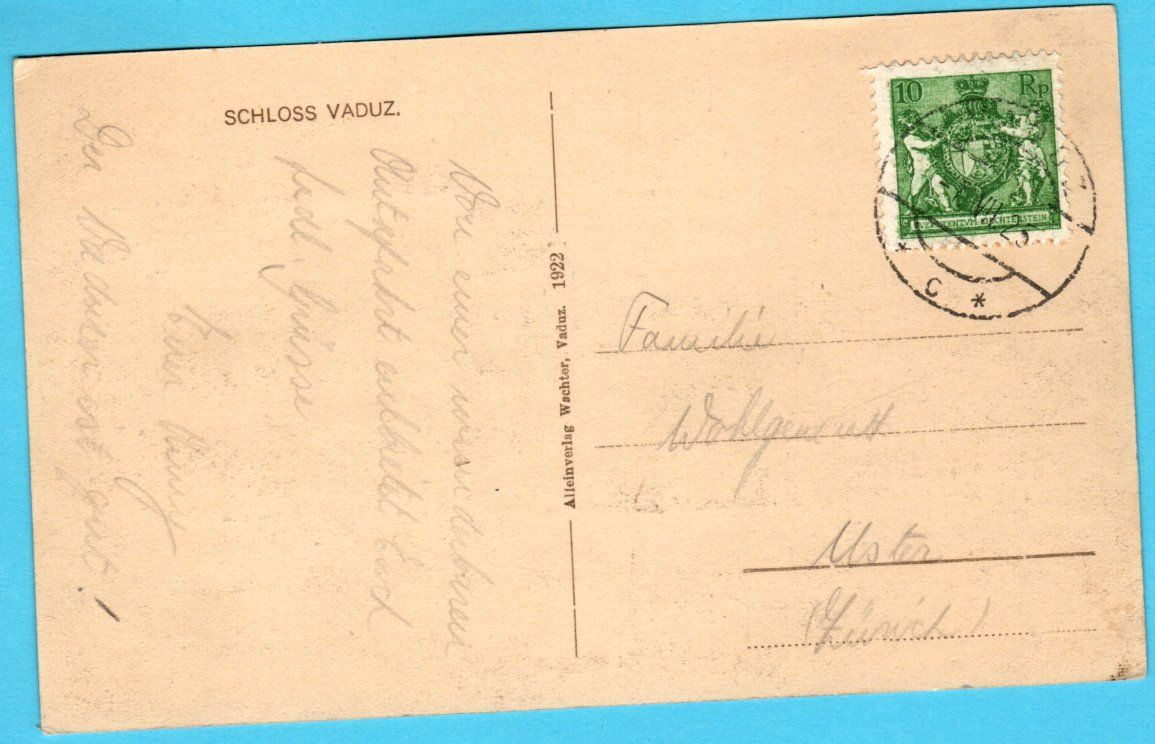 SCHLOSS VADUZ.
Von einer wunderbaren
Autofahrt entbietet Euch
herzl. Grüsse
Euer
Der Vaduzer ist gut!
Alleinverlag Wachter, Vaduz. 1922
10 Rp
FÜRSTENTVM LIECHTENSTEIN
C *
Familie
Wohlgemuth
Uster
(Zürich)